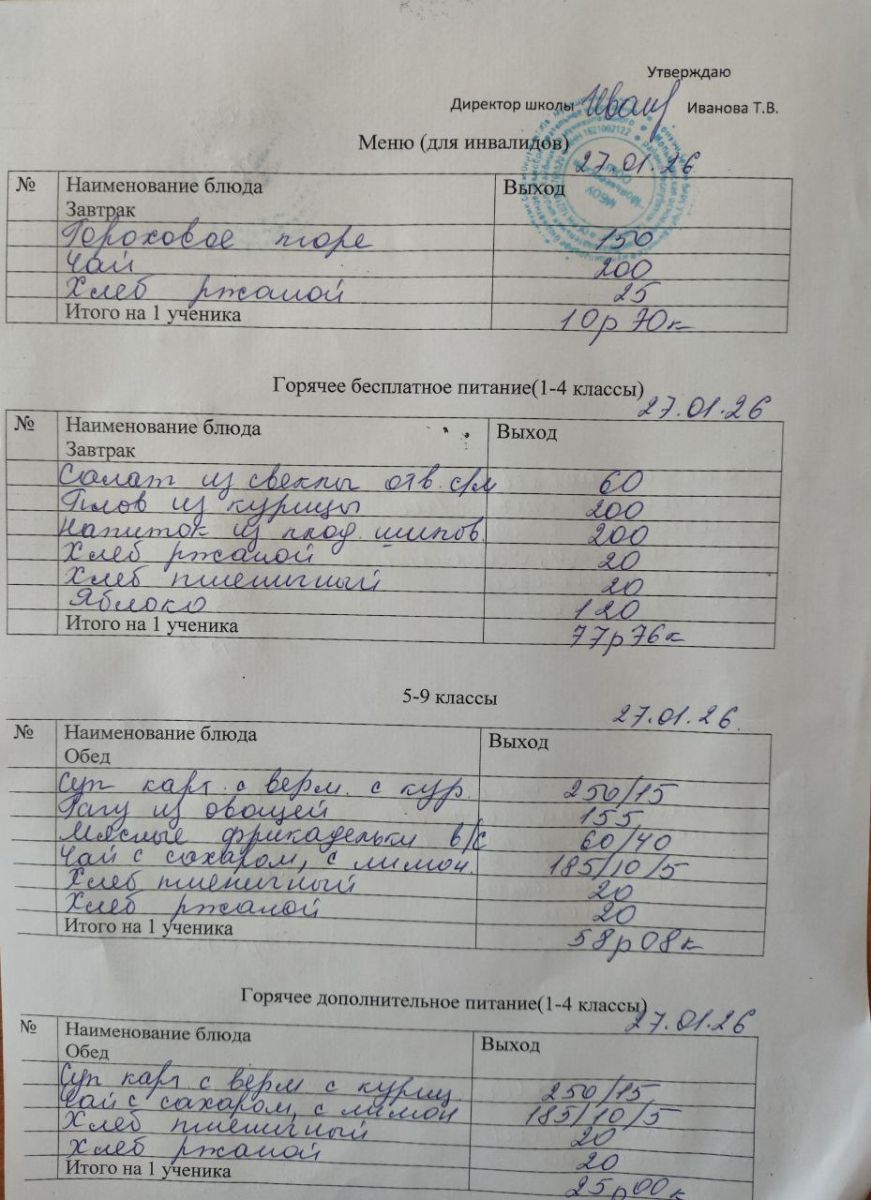 Утверждаю
Директор школы Иванова Т.В.
Меню (для инвалидов)
27.01.26
№ Наименование блюда Выход
Завтрак
Гороховое пюре 150
Чай 200
Хлеб ржаной 25
Итого на 1 ученика 10р 70к
Горячее бесплатное питание(1-4 классы)
27.01.26
№ Наименование блюда Выход
Завтрак
Салат из свеклы отв. с/м 60
Плов из курицы 200
Напиток из плод. шипов. 200
Хлеб ржаной 20
Хлеб пшеничный 20
Яблоко 120
Итого на 1 ученика 77р 76к
5-9 классы
27.01.26
№ Наименование блюда Выход
Обед
Суп карт. с верм. с кур. 250/15
Рагу из овощей 155
Мясные фрикадельки в/с 60/40
Чай с сахаром, с лимон. 185/10/5
Хлеб пшеничный 20
Хлеб ржаной 20
Итого на 1 ученика 58р 08к
Горячее дополнительное питание(1-4 классы)
27.01.26
№ Наименование блюда Выход
Обед
Суп карт с верм с куриц. 250/15
Чай с сахаром, с лимон 185/10/5
Хлеб пшеничный 20
Хлеб ржаной 20
Итого на 1 ученика 25р 00к